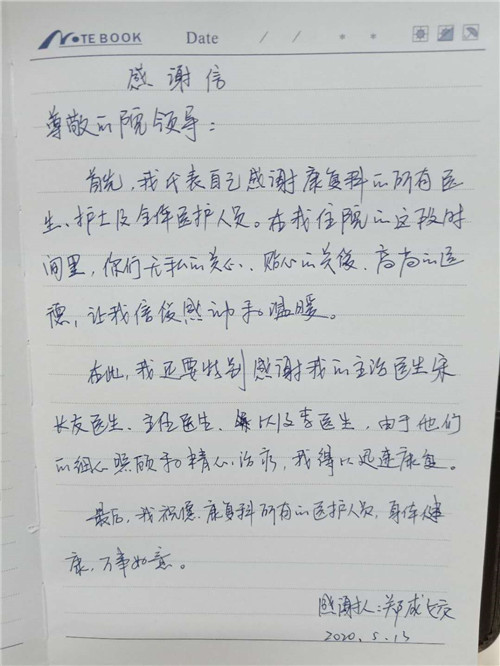 NOTEBOOK Date / /
感谢信
尊敬的院领导：
首先，我代表自己感谢康复科的所有医
生、护士及全体医护人员。在我住院的这段时
间里，你们无私的关心、贴心的关怀、高尚的医
德，让我倍促感动和温暖。
在此，我还要特别感谢我的主治医生宋
长友医生、主任医生、以及李医生，由于他们
的细心照顾和精心治疗，我得以迅速康复。
最后，我祝愿康复科所有的医护人员，身体健
康，万事如意。
感谢人：郑成
2020.5.13